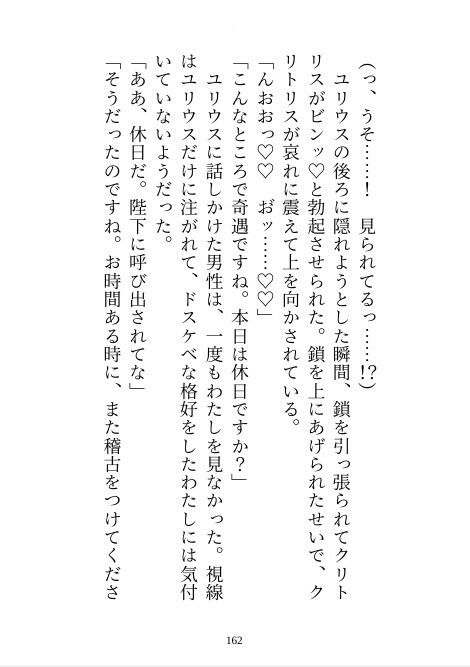 (っ、うそ……！　見られてるっ……!?)
　ユリウスの後ろに隠れようとした瞬間、鎖を引っ張られてクリト
リスがビンッ♡と勃起させられた。鎖を上にあげられたせいで、ク
リトリスが哀れに震えて上を向かされている。
「んおおっ♡♡　おﾞッ……♡♡」
「こんなところで奇遇ですね。本日は休日ですか？」
　ユリウスに話しかけた男性は、一度もわたしを見なかった。視線
はユリウスだけに注がれて、ドスケベな格好をしたわたしには気付
いていないようだった。
「ああ、休日だ。陛下に呼び出されてな」
「そうだったのですね。お時間ある時に、また稽古をつけてくださ
162